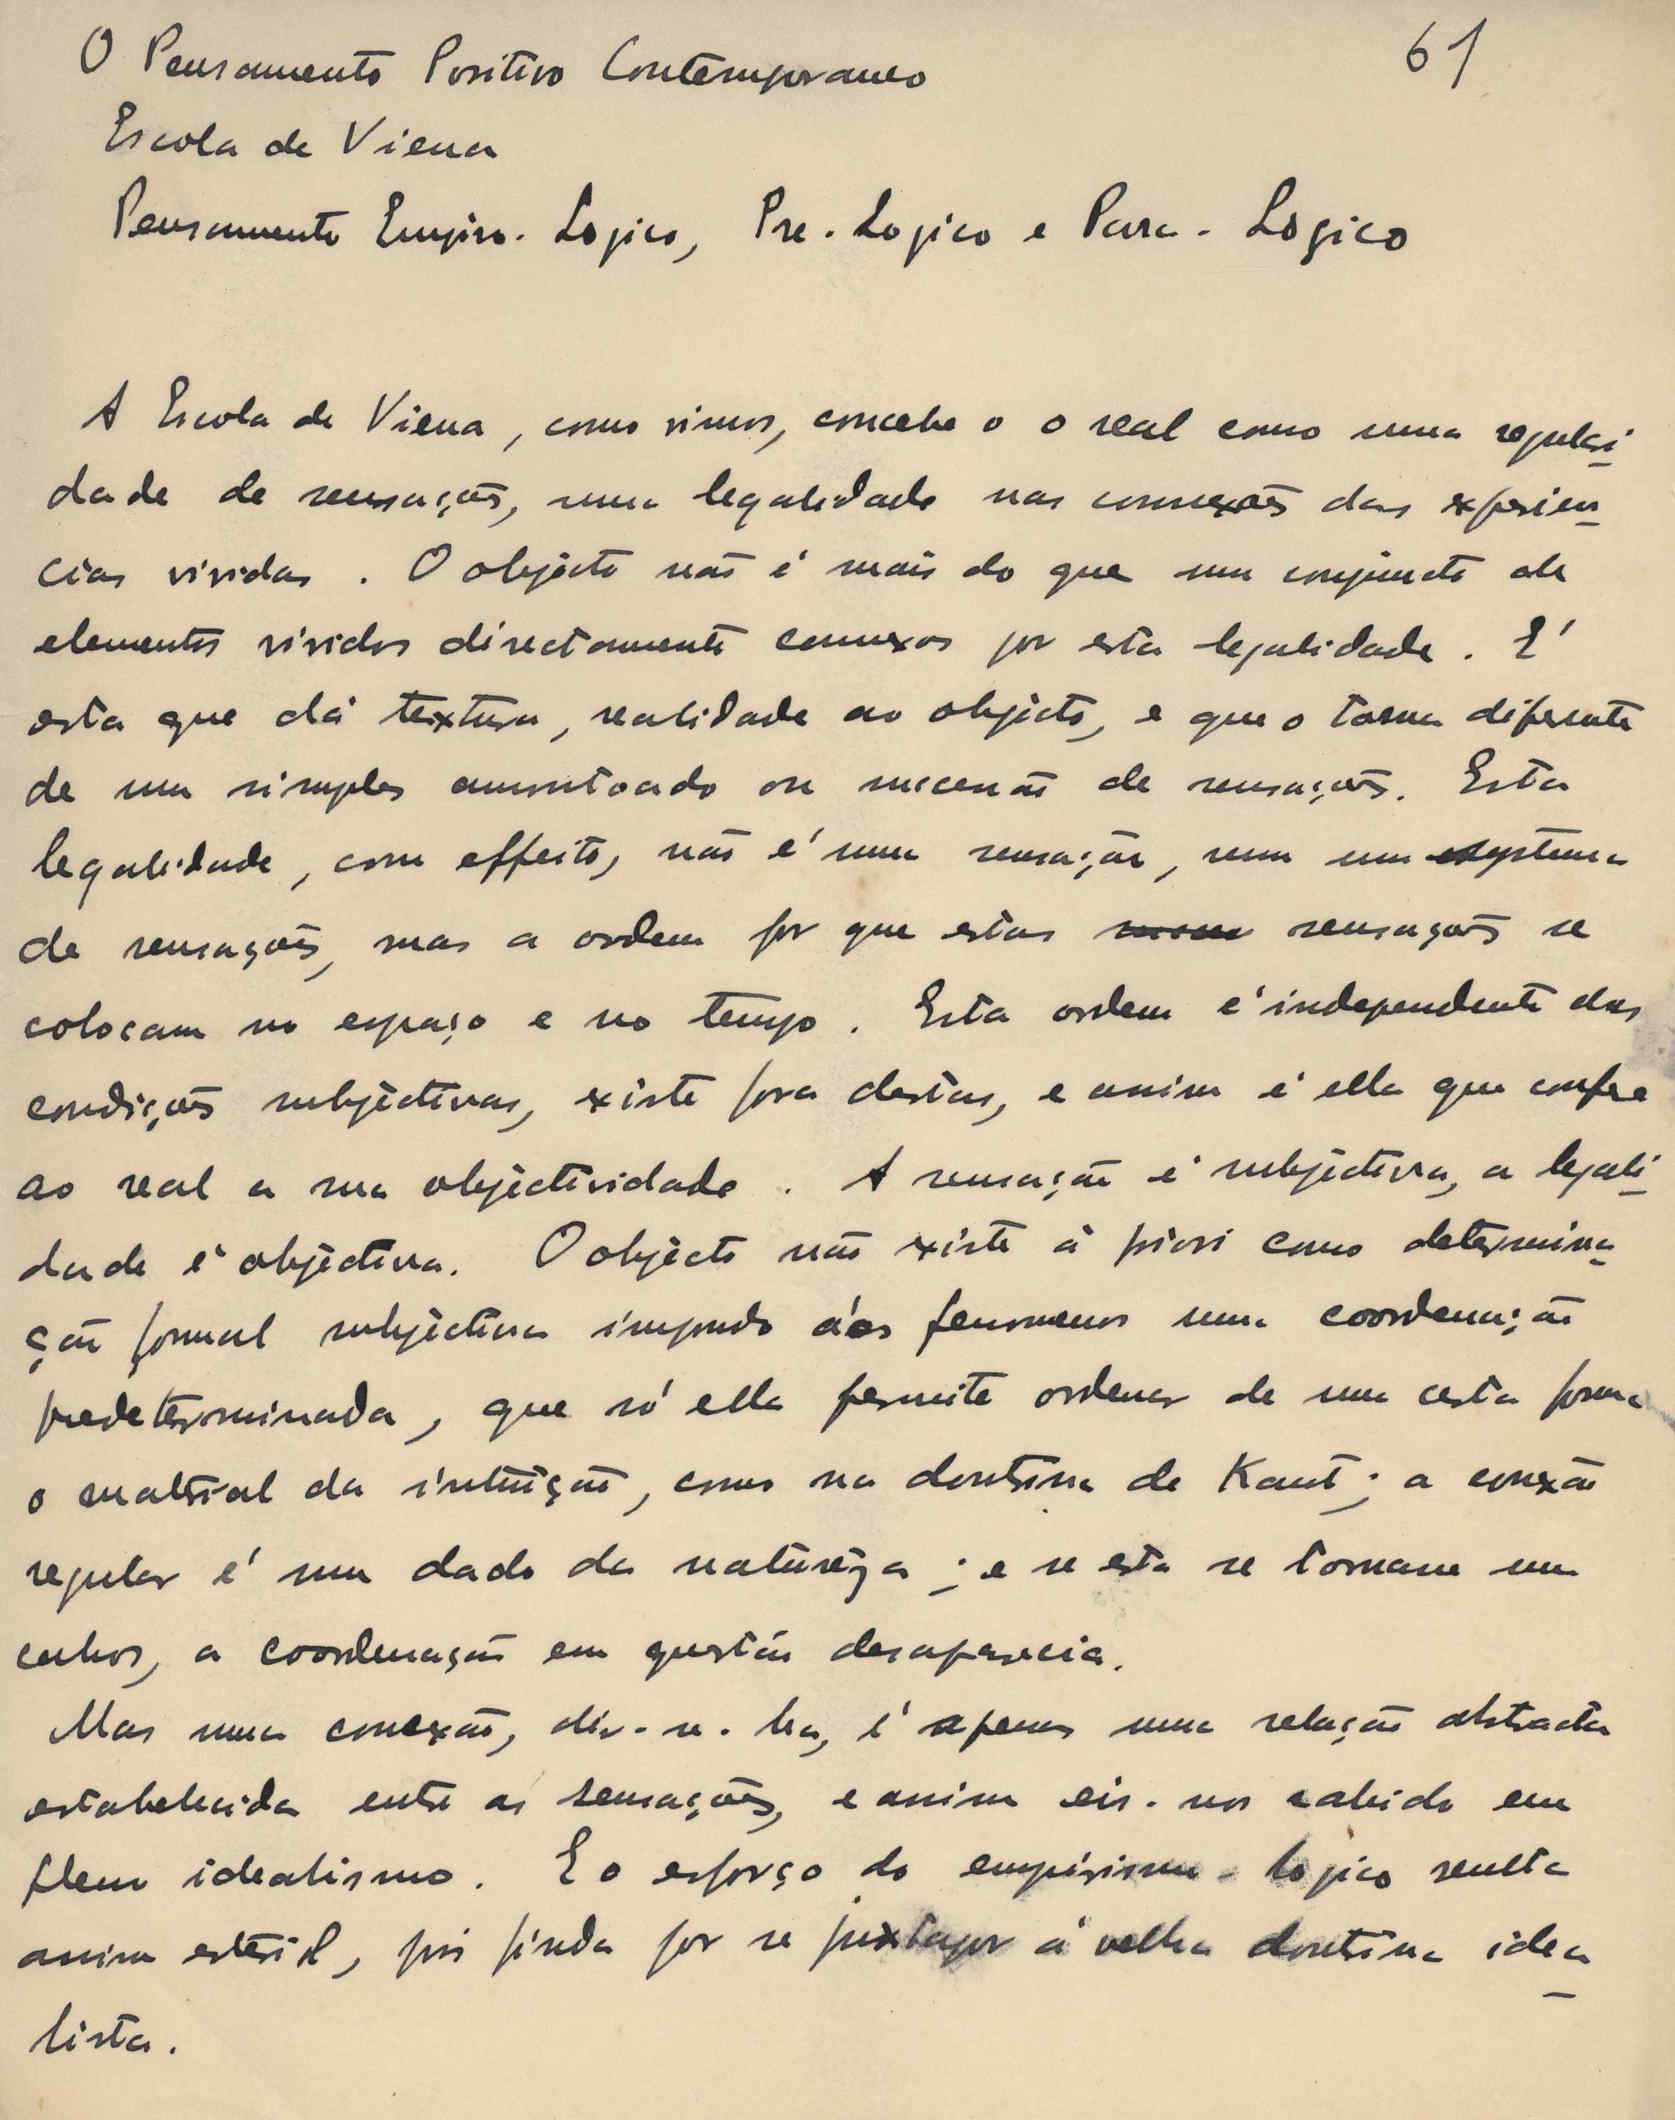 O Pensamento Positivo Contemporaneo
61
Escola de Viena
Pensamento Empiro-Logico, Pre-Logico e Para-Logico
A Escola de Viena, como vimos, concebe o o real como uma regulari-
dade de sensações, uma legalidade nas connexões das experien-
cias vividas. O objécto não é mais do que um conjuncto de
elementos vividos directamente connexos por esta legalidade. E'
esta que dá textura, realidade ao objécto, e que o torna diferente
de um simples amontoado ou mecenão de sensações. Esta
legalidade, com effeito, não é uma sensação, nem um systema
de sensações, mas a ordem por que estas sensações se
colocam no espaço e no tempo. Esta ordem é independente das
condições subjéctivas, existe fora destas, e assim é ella que confere
ao real a sua objéctividade. A sensação é subjéctiva, a legali-
dade é objéctiva. O objécto não existe á priori como determina-
ção formal subjéctiva impondo aos fenomenos uma coordenação
predeterminada, que só ella permite ordenar de uma certa forma
o material da intuição, como na doutrina de Kant; a conexão
regular é um dado da naturêza; e se esta se tornasse um
cahos, a coordenação em questão desaparecia.
Mas uma conexão, dir-se-ha, é apenas uma relação abstracta
estabelecida entre as sensações, e assim eis-nos cahido em
pleno idealismo. E o esforço do empirismo-logico resulta
assim estéril, pois finda por se juxtapor á velha doutrina idea-
lista.